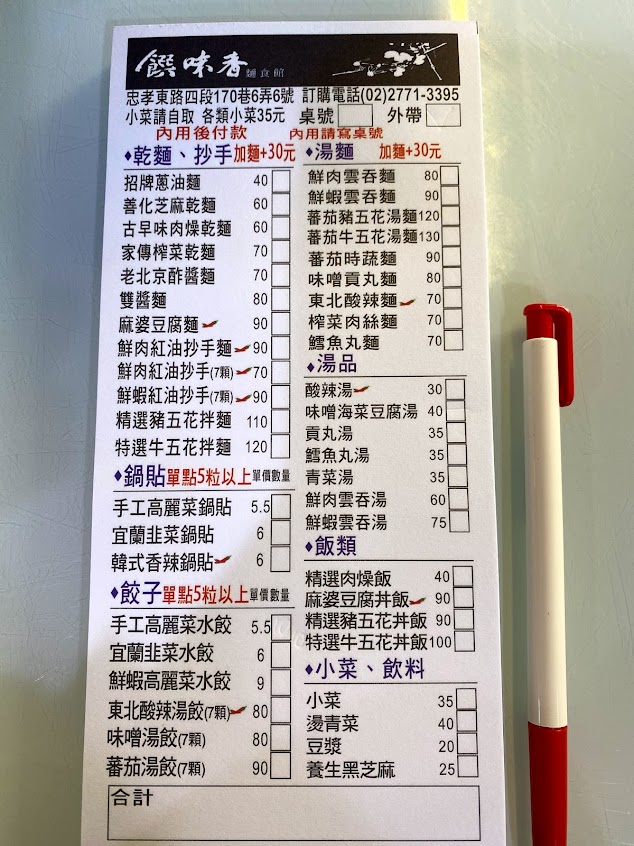 饌味香麵食館
忠孝東路四段170巷6弄6號 訂購電話(02)2771-3395
小菜請自取 各類小菜35元 桌號 外帶
內用後付款 內用請寫桌號
♦乾麵、抄手加麵+30元
招牌蔥油麵 40
善化芝麻乾麵 60
古早味肉燥乾麵 60
家傳榨菜乾麵 70
老北京酢醬麵 70
雙醬麵 80
麻婆豆腐麵 90
鮮肉紅油抄手麵 90
鮮肉紅油抄手(7顆) 70
鮮蝦紅油抄手(7顆) 90
精選豬五花拌麵 110
特選牛五花拌麵 120
♦鍋貼單點5粒以上單價數量
手工高麗菜鍋貼 5.5
宜蘭韭菜鍋貼 6
韓式香辣鍋貼 6
♦餃子單點5粒以上單價數量
手工高麗菜水餃 5.5
宜蘭韭菜水餃 6
鮮蝦高麗菜水餃 9
東北酸辣湯餃(7顆) 80
味噌湯餃(7顆) 80
蕃茄湯餃(7顆) 90
♦湯麵 加麵+30元
鮮肉雲吞麵 80
鮮蝦雲吞麵 90
蕃茄豬五花湯麵 120
蕃茄牛五花湯麵 130
蕃茄時蔬麵 90
味噌貢丸麵 80
東北酸辣麵 70
榨菜肉絲麵 70
鱈魚丸麵 70
♦湯品
酸辣湯 30
味噌海菜豆腐湯 40
貢丸湯 35
鱈魚丸湯 35
青菜湯 35
鮮肉雲吞湯 60
鮮蝦雲吞湯 75
♦飯類
精選肉燥飯 40
麻婆豆腐丼飯 90
精選豬五花丼飯 90
特選牛五花丼飯 100
♦小菜、飲料
小菜 35
燙青菜 40
豆漿 20
養生黑芝麻 25
合計